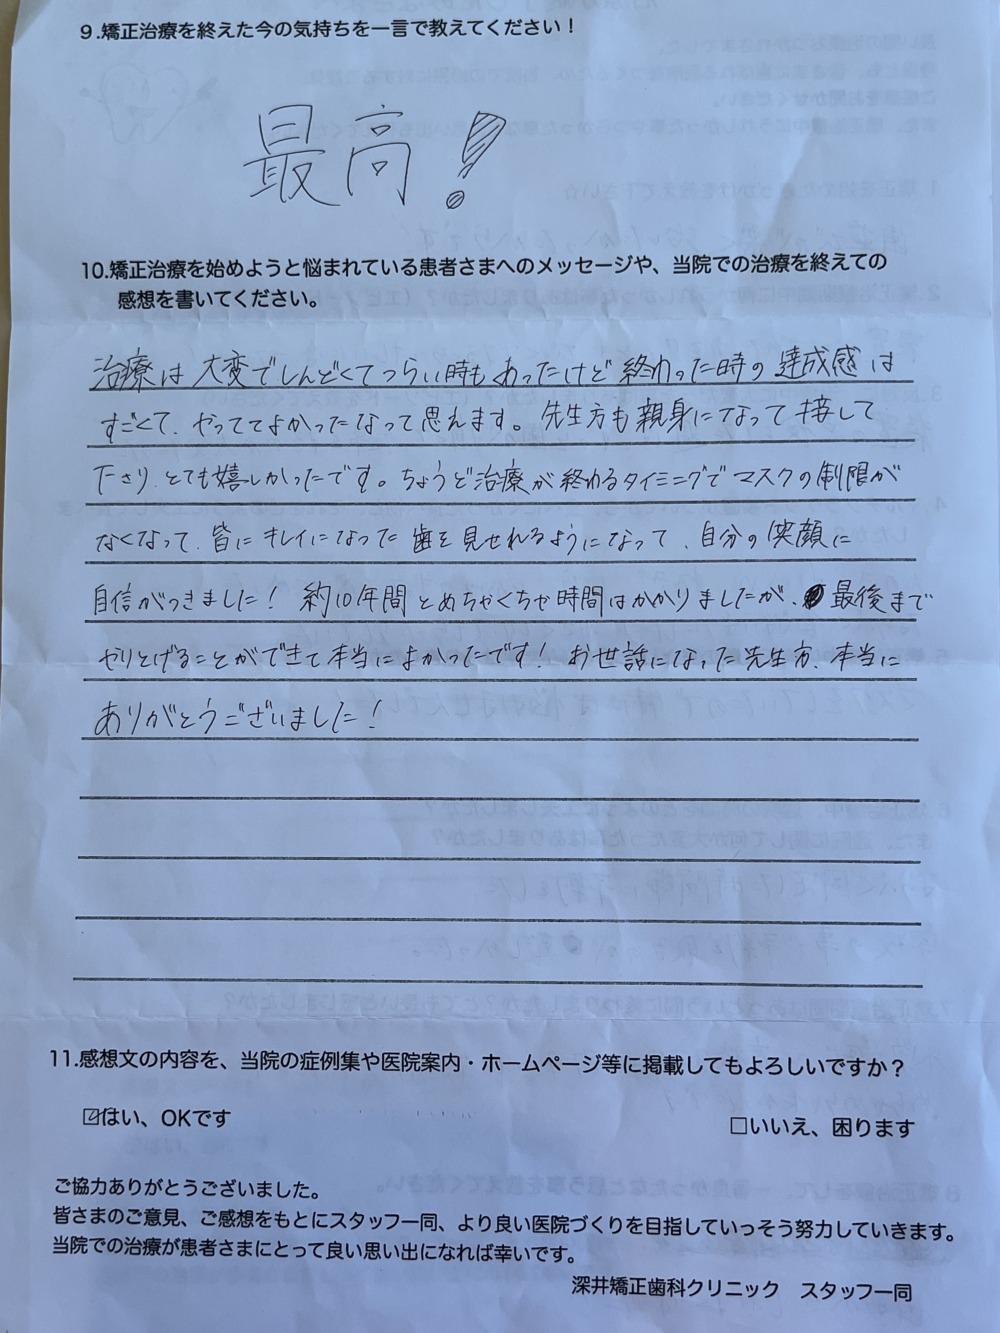 9.矯正治療を終えた今の気持ちを一言で教えてください！
最高！
10.矯正治療を始めようと悩まれている患者さまへのメッセージや、当院での治療を終えての
感想を書いてください。
治療は大変でしんどくてつらい時もあったけど終わった時の達成感は
すごくて、やっててよかったなって思えます。先生方も親身になって接して
下さり、とても嬉しかったです。ちょうど治療が終わるタイミングでマスクの制限が
なくなって、皆にキレイになった歯を見せれるようになって、自分の笑顔に
自信がつきました！約10年間とめちゃくちゃ時間はかかりましたが、最後まで
やりとげることができて本当によかったです！お世話になった先生方、本当に
ありがとうございました！
11.感想文の内容を、当院の症例集や医院案内・ホームページ等に掲載してもよろしいですか？
☑はい、OKです
□いいえ、困ります
ご協力ありがとうございました。
皆さまのご意見、ご感想をもとにスタッフ一同、より良い医院づくりを目指していっそう努力していきます。
当院での治療が患者さまにとって良い思い出になれば幸いです。
深井矯正歯科クリニック　スタッフ一同